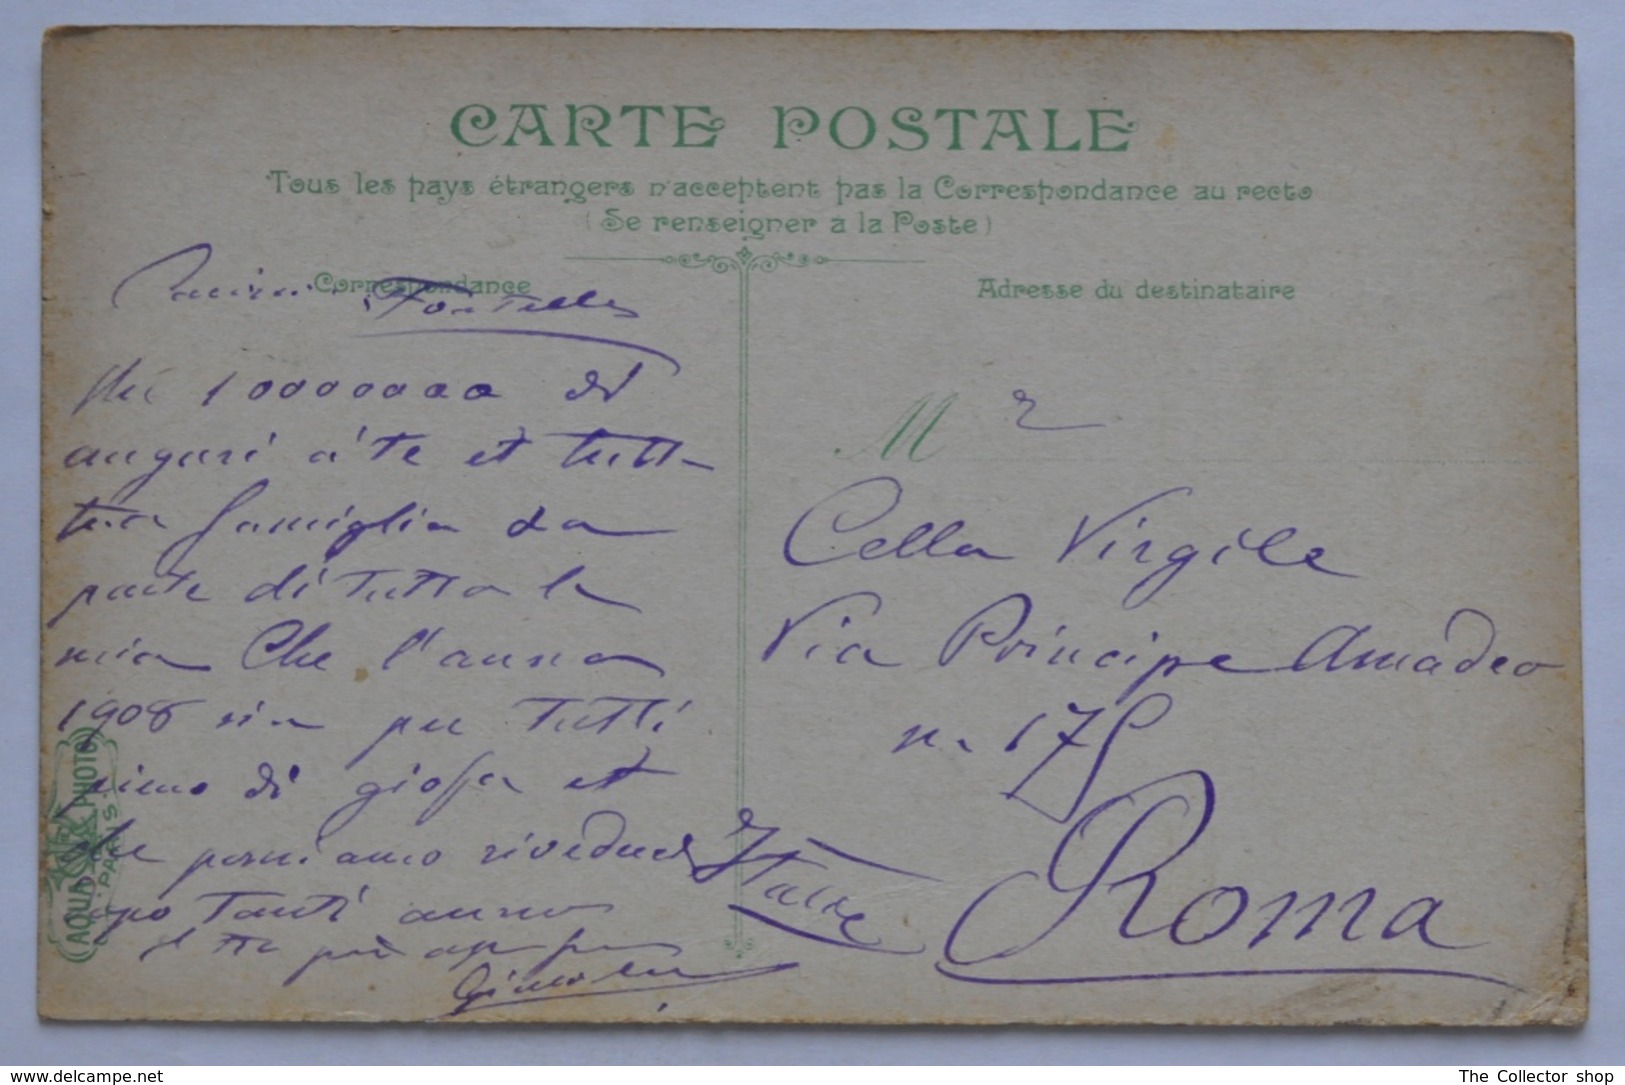 CARTE POSTALE
Tous les pays étrangers n'acceptent pas la Correspondance au recto
(Se renseigner à la Poste)
Correspondance
Adresse du destinataire
10000000 di
auguri a te et tutta
tua famiglia da
parte di tutta la
mia Che l'anno
1908 sia per tutti
pieno di gioja et
che possiamo rivederci
dopo tanti anni
M r
Cella Virgile
Via Principe Amadeo
n. 175
Roma
Italie
AQUA PHOTO
PARIS
www.delcampe.net
The Collector shop